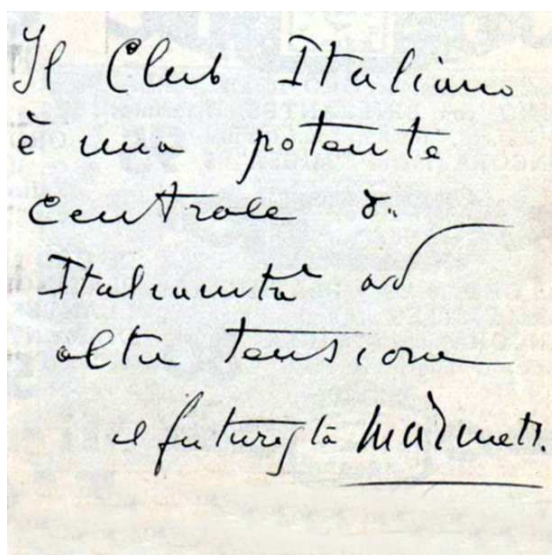 Il Club Italiano
è una potente
centrale di
Italianità ad
alta tensione
il futurista Marinetti